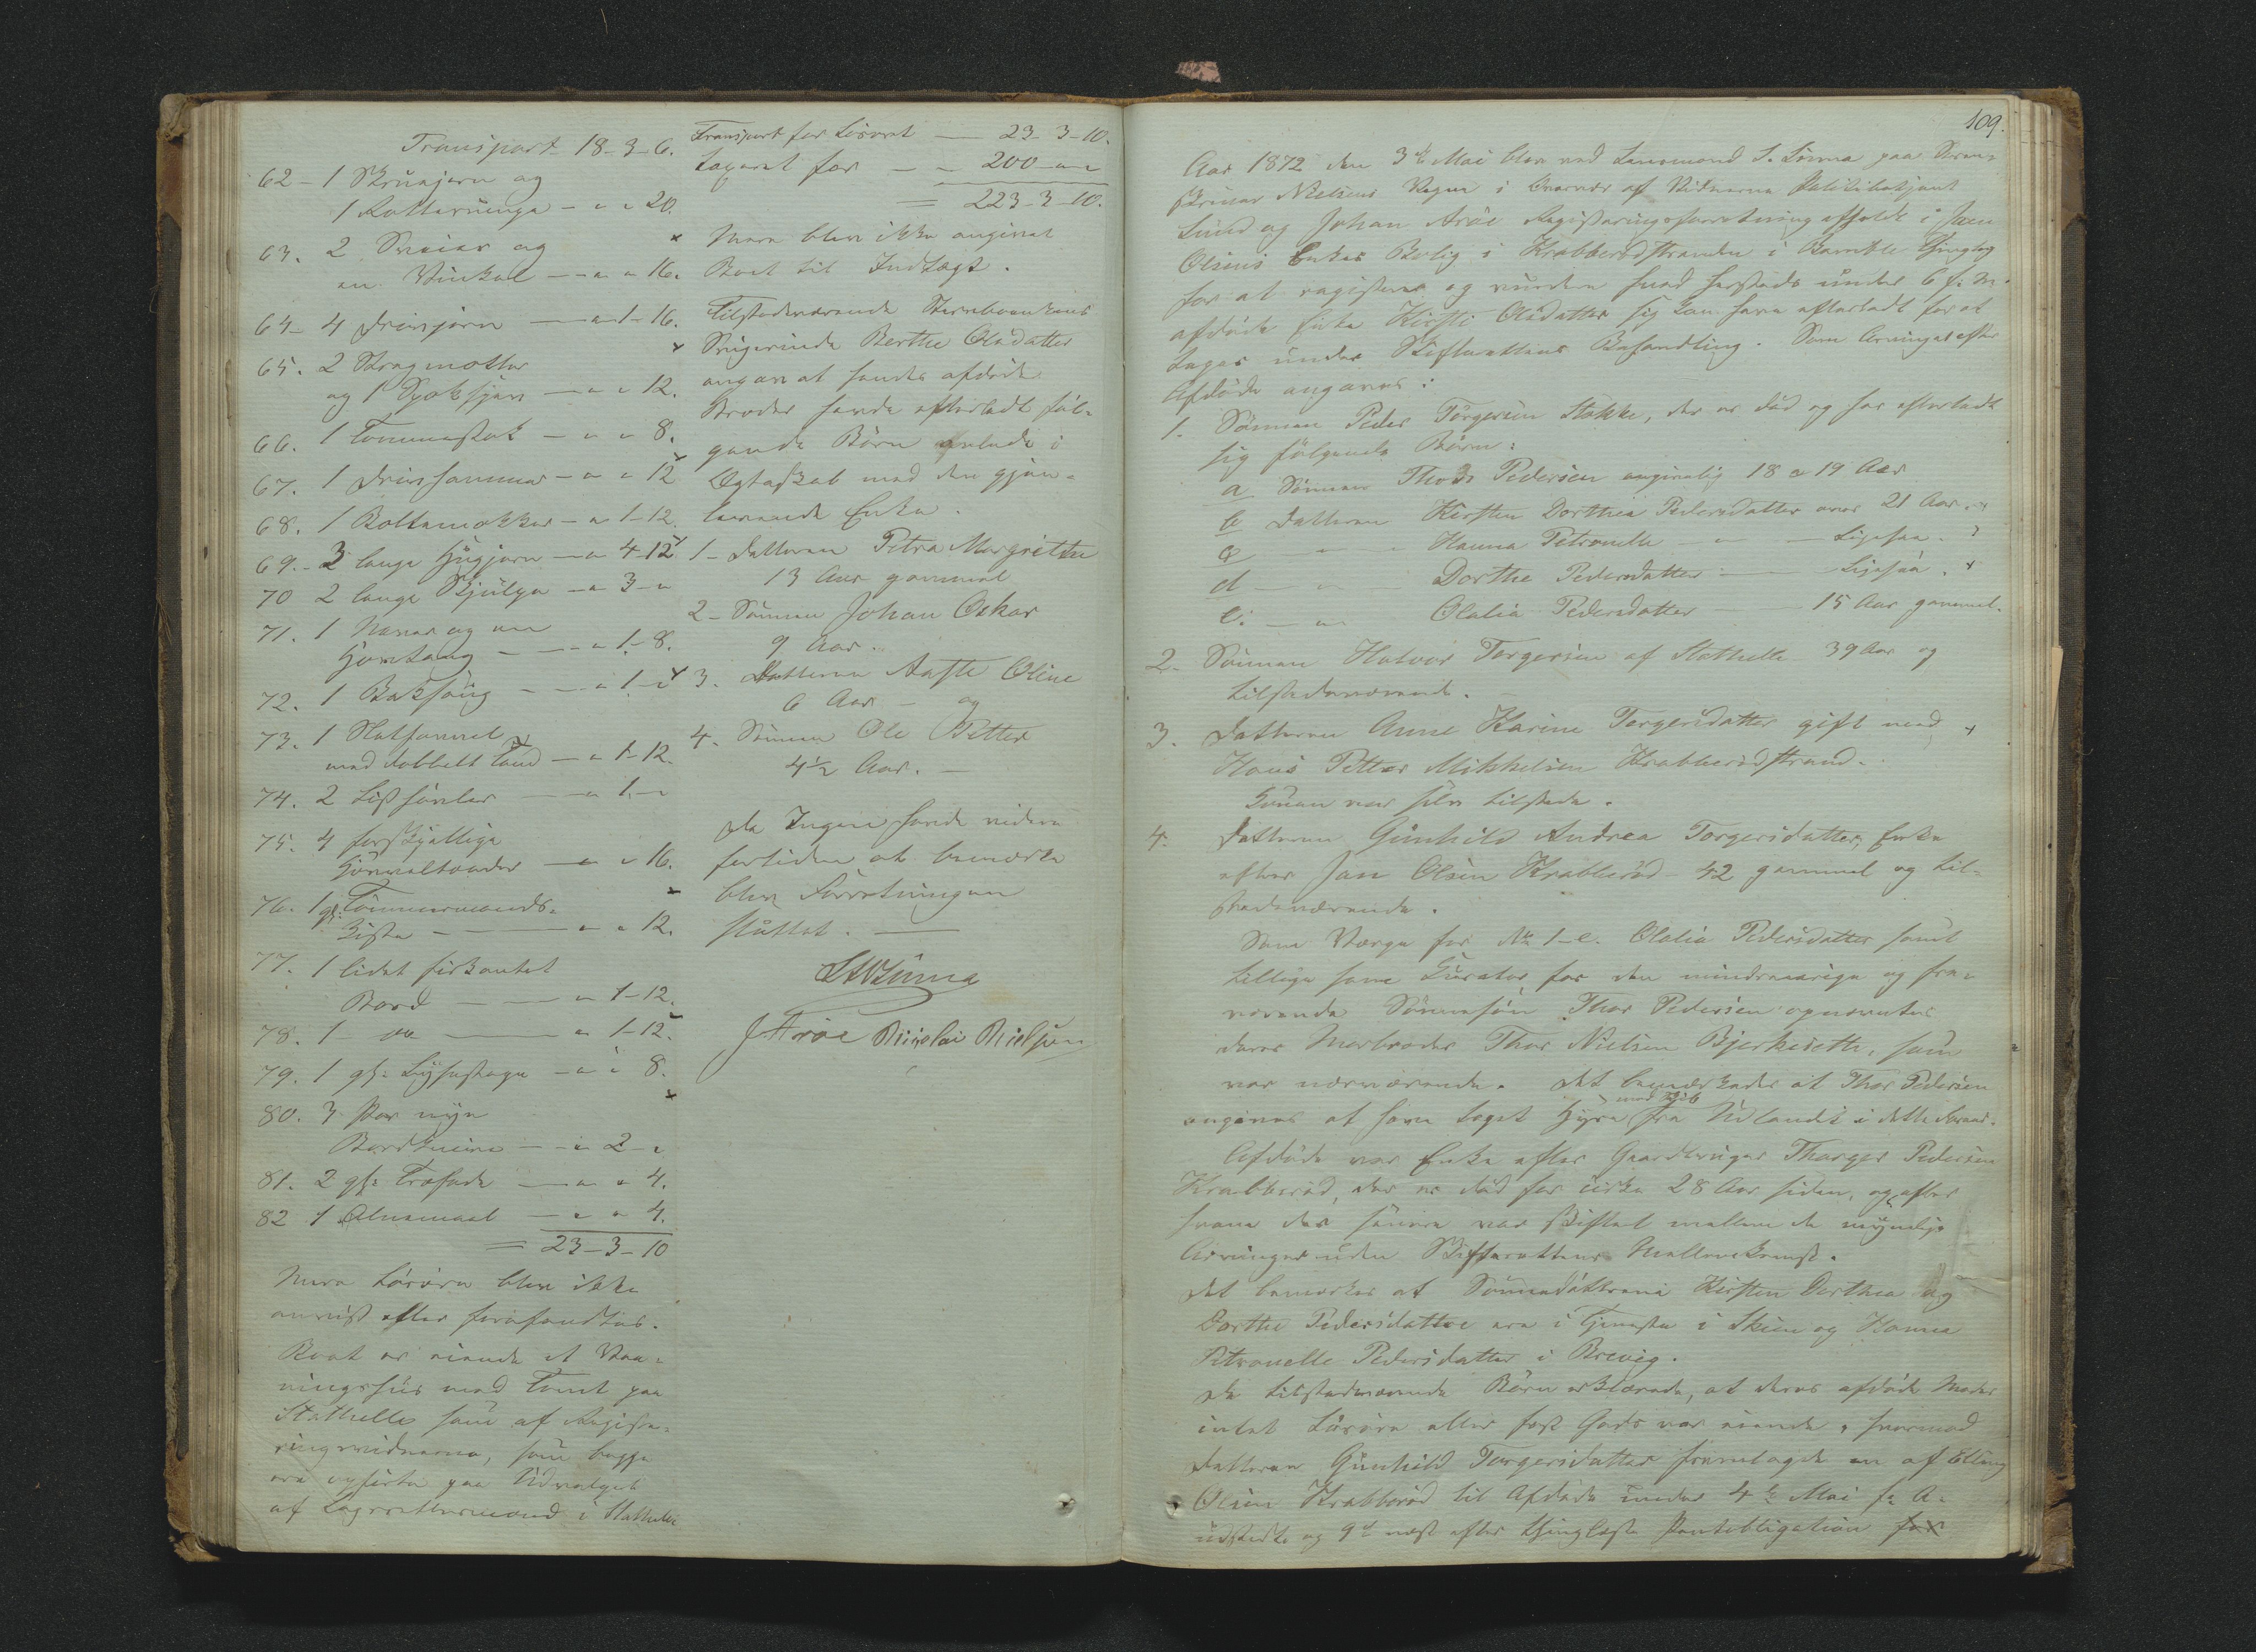 Transport 18-3-6.
62-1 Skruejern og
1 - " " 20.
63. 2 og
en Vinkel - " " 16.
64- 4 Drivjern - " 1-16.
65. 2
og 1 - " " 12.
66. 1 Tommestok - " " 8.
67. 1 Drivhammer - " " 12
68. 1 - " 1-12.
69.- 3 lange Hugjern - " 4-12
70 2 lange - " 3-"
71. 1 Naver og en
- " 1-8.
72. 1 Baksaug - " 1-"
73. 1
med dobbelt Tand - " 1-12.
74. 2 Listhøvler - " 1-"
75. 4 forskjellige
- " " 16.
76. 1 gl: Tømmermands-
Kiste - " " 12.
77. 1 lidet firkantet
Bord - " 1-12.
78. 1 do - " 1-12.
79. 1 gl: Lysestage - " " 8.
80. 3 Par nye
- " 2-"
81. 2 gl: Træfade - " " 4.
82 1 Alnemaal - " " 4.
= 23-3-10
Mere Løsøre blev ikke
anvist eller forefandtes.
Boet er eiende et Vaa-
ningshus med Tomt paa
Stathelle som af Registe-
ringsvidnerne, som begge
ere opførte paa Udvalget
af Lagrettesmænd i Stathelle
Transport for Løsøret - 23-3-10.
taxeret for - - 200-"-"
= 223-3-10.
Mere blev ikke angivet
Boet til Indtægt.
Tilstedeværende Sterboenkens
Svigerinde Berthe Olsdatter
angav at hendes afdøde
Broder havde efterladt føl-
gende Børn avlede i
Egteskab med den gjen-
levende Enke.
1- Datteren Petra Margrethe
13 Aar gammel
2- Sønnen Johan Oskar
9 Aar.
3. Datteren Aaste Oline
6 Aar - og
4. Sønnen Ole Petter
4½ Aar. -
Da Ingen havde videre
for tiden at bemærke
blev Forretningen
sluttet. -
J. Arøe Nicolai Nielsen
109.
Aar 1872 den 3die Mai blev ved Lensmand S. Linna paa
Skriver Nielsens Vegne i Overvær af Vidnerne Politibetjent
Lund og Johan Arøe Registeringsforretning afholdt i Jan
Olsens Enkes Bolig i Krabberødstranden i Bamble Thinglag
for at registere og vurdere hvad sidste under 6 f. M.
afdøde Enke Kirsti Olsdatter sig kan have efterladt for at
tages under Skifterettens Behandling. Som Arvinger efter
Afdøde angaves:
1. Sønnen Peder Torgersen Stokke, der er død og har efterladt
sig følgende Børn:
a Sønnen Thor Pedersen angivelig 18 a 19 Aar
b Datteren Kirsten Dorthea Pedersdatter over 21 Aar.
c - " - Hanna Petronelle - - Ligesaa.
d - " - Dorthe Pedersdatter - Ligesaa.
e. - " - Olalia Pedersdatter - 15 Aar gammel.
2- Sønnen Halvor Torgersen af Stathelle 39 Aar og
tilstedeværende.
3. Datteren Anne Karine Torgersdatter gift med
Hans Petter Mikkelsen Krabberødstrand.
Konen var selv tilstede.
4. Datteren Gunhild Andrea Torgersdatter, Enke
efter Jan Olsen Krabberød - 42 gammel og til-
stedeværende.
Som Værge for No 1-e. Olalia Pedersdatter samt
tillige som Curator for den mindreaarige og fra-
værende Sønnesøn Thor Pedersen opnævntes
deres Morbroder Thor Nielsen Bjerkeseth, som
var nærværende. Det bemærkedes at Thor Pedersen
angives at have taget Hyre med Skib fra Udlandet i dette Foraar.
Afdøde var Enke efter Gaardbruger Thorger Pedersen
Krabberød, der er død for cirka 28 Aar siden, og efter
hvem der senere var skiftet mellem de myndige
Arvinger uden Skifterettens Mellemkomst.
Det bemærkes at Sønnedøttrene Kirsten Dorthea og
Dorthe Pedersdatter ere i Tjeneste i Skien og Hanna
Petronelle Pedersdatter i Brevig.
De tilstedeværende Børn erklærede, at deres afdøde Moder
intet Løsøre eller fast Gods var eiende, hvormod
Datteren Gunhild Torgersdatter fremlagde en af Elling
Olsen Krabberød til Afdøde under 4de Mai f. A.
udstedt og 9de næst efter thinglæst Pantobligation for